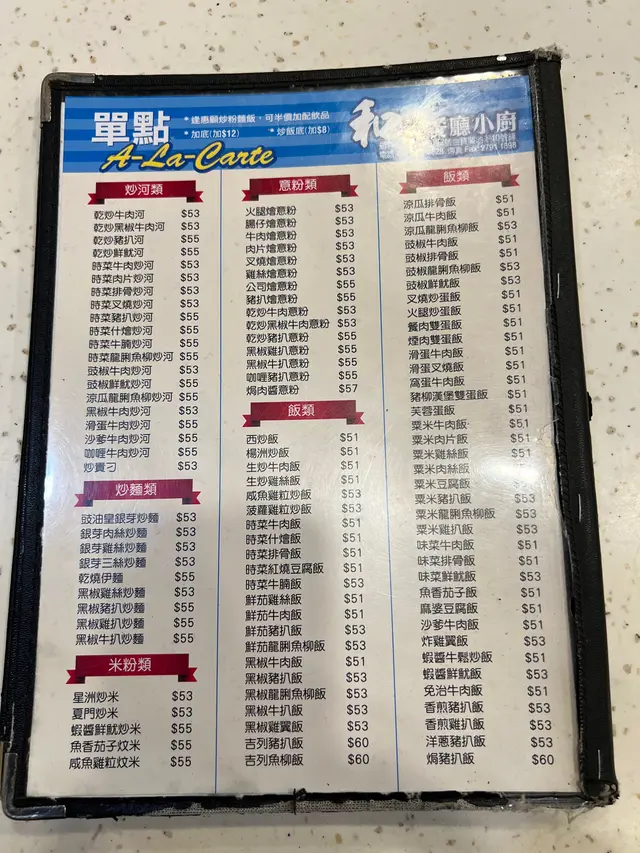 單點
*逢惠顧炒粉麵飯，可半價加配飲品
*加底(加$12) *炒飯底(加$8)
A-La-Carte
和
餐廳小廚
Fax: 2791 1898
炒河類
乾炒牛肉河 $53
乾炒黑椒牛肉河 $53
乾炒豬扒河 $55
乾炒鮮魷河 $55
時菜牛肉炒河 $53
時菜肉片炒河 $53
時菜排骨炒河 $53
時菜叉燒炒河 $53
時菜豬扒炒河 $55
時菜什燴炒河 $55
時菜牛腩炒河 $55
時菜龍脷魚柳炒河 $55
豉椒牛肉炒河 $53
豉椒鮮魷炒河 $55
涼瓜龍脷魚柳炒河 $55
黑椒牛肉炒河 $53
滑蛋牛肉炒河 $55
沙爹牛肉炒河 $55
咖喱牛肉炒河 $55
炒貴刁 $53
炒麵類
豉油皇銀芽炒麵 $53
銀芽肉絲炒麵 $53
銀芽雞絲炒麵 $53
銀芽三絲炒麵 $53
乾燒伊麵 $55
黑椒雞絲炒麵 $53
黑椒豬扒炒麵 $55
黑椒雞扒炒麵 $55
黑椒牛扒炒麵 $55
米粉類
星洲炒米 $53
夏門炒米 $53
蝦醬鮮魷炒米 $55
魚香茄子炆米 $55
咸魚雞粒炆米 $55
意粉類
火腿燴意粉 $53
腸仔燴意粉 $53
牛肉燴意粉 $53
肉片燴意粉 $53
叉燒燴意粉 $53
雞絲燴意粉 $53
公司燴意粉 $55
豬扒燴意粉 $55
乾炒牛肉意粉 $53
乾炒黑椒牛肉意粉 $53
乾炒豬扒意粉 $55
黑椒雞扒意粉 $55
黑椒牛扒意粉 $55
咖喱豬扒意粉 $55
焗肉醬意粉 $57
飯類
西炒飯 $51
楊洲炒飯 $51
生炒牛肉飯 $51
生炒雞絲飯 $51
咸魚雞粒炒飯 $53
菠蘿雞粒炒飯 $53
時菜牛肉飯 $51
時菜什燴飯 $53
時菜排骨飯 $51
時菜紅燒豆腐飯 $51
時菜牛腩飯 $53
鮮茄雞絲飯 $51
鮮茄牛肉飯 $51
鮮茄豬扒飯 $53
鮮茄龍脷魚柳飯 $53
黑椒牛肉飯 $51
黑椒豬扒飯 $53
黑椒龍脷魚柳飯 $53
黑椒牛扒飯 $53
黑椒雞翼飯 $53
吉列豬扒飯 $60
吉列魚柳飯 $60
飯類
涼瓜排骨飯 $51
涼瓜牛肉飯 $51
涼瓜龍脷魚柳飯 $53
豉椒牛肉飯 $51
豉椒排骨飯 $51
豉椒龍脷魚柳飯 $53
豉椒鮮魷飯 $53
叉燒炒蛋飯 $51
火腿炒蛋飯 $51
餐肉雙蛋飯 $51
煙肉雙蛋飯 $51
滑蛋牛肉飯 $51
滑蛋叉燒飯 $51
窩蛋牛肉飯 $51
豬柳漢堡雙蛋飯 $51
芙蓉蛋飯 $51
粟米牛肉飯 $51
粟米肉片飯 $51
粟米雞絲飯 $51
粟米肉絲飯 $51
粟米豆腐飯 $51
粟米豬扒飯 $53
粟米龍脷魚柳飯 $53
粟米雞扒飯 $53
味菜牛肉飯 $51
味菜排骨飯 $51
味菜鮮魷飯 $53
魚香茄子飯 $51
麻婆豆腐飯 $51
沙爹牛肉飯 $51
炸雞翼飯 $53
蝦醬牛鬆炒飯 $51
蝦醬鮮魷飯 $53
免治牛肉飯 $51
香煎豬扒飯 $53
香煎雞扒飯 $53
洋蔥豬扒飯 $53
焗豬扒飯 $60